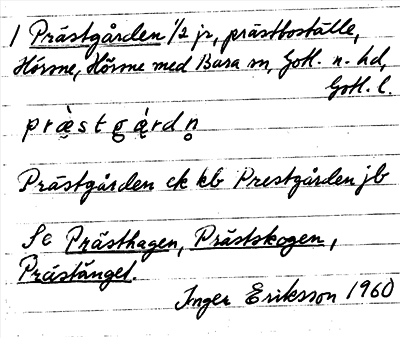 1 Prästgården 1/2 jr, prästboställe,
Hörsne, Hörsne med Bara sn, Gotl. n. hd,
Gotl. l.
Prästgården ek kb Prestgården jb
Se Prästhagen, Prästskogen,
Prästänget.
Inger Eriksson 1960